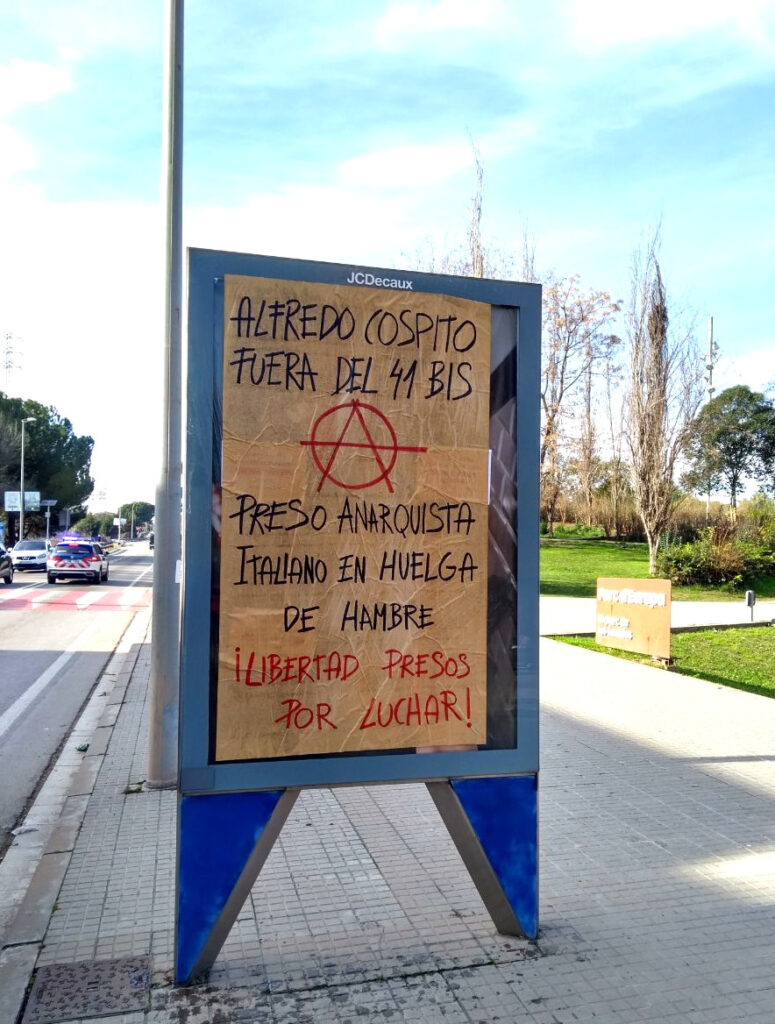 JCDecaux
ALFREDO COSPITO
FUERA DEL 41 BIS
PRESO ANARQUISTA
ITALIANO EN HUELGA
DE HAMBRE
¡LIBERTAD PRESOS
POR LUCHAR!
Parc d'Europa